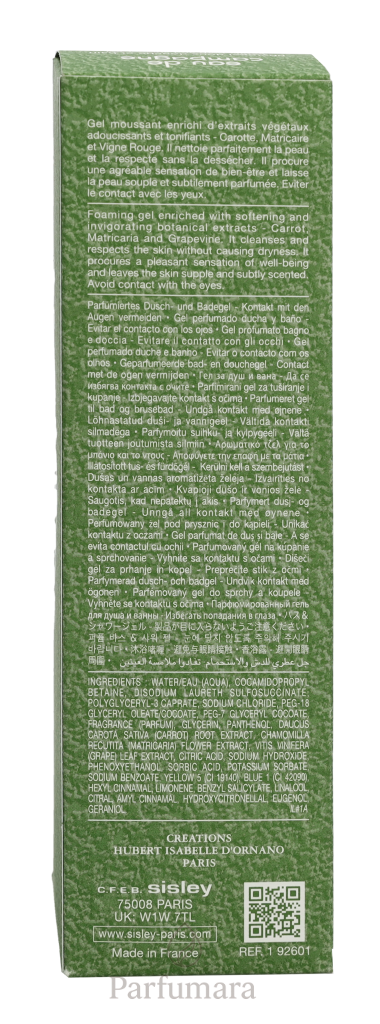 eau de
campagne
Gel moussant enrichi d'extraits végétaux
adoucissants et tonifiants - Carotte, Matricaire
et Vigne Rouge. Il nettoie parfaitement la peau
et la respecte sans la dessécher. Il procure
une agréable sensation de bien-être et laisse
la peau souple et subtilement parfumée. Eviter
le contact avec les yeux.
Foaming gel enriched with softening and
invigorating botanical extracts - Carrot,
Matricaria and Grapevine. It cleanses and
respects the skin without causing dryness. It
procures a pleasant sensation of well-being
and leaves the skin supple and subtly scented.
Avoid contact with the eyes.
Parfümiertes Dusch- und Badegel - Kontakt mit den
Augen vermeiden • Gel perfumado ducha y baño -
Evitar el contacto con los ojos • Gel profumato bagno
e doccia - Evitare il contatto con gli occhi • Gel
perfumado duche e banho - Evitar o contacto com os
olhos • Geparfumeerde bad- en douchegel - Contact
met de ogen vermijden • Гел за душ и вана - Да се
избягва контакта с очите • Parfimirani gel za tuširanje i
kupanje - Izbjegavajte kontakt s očima • Parfumeret gel
til bad og brusebad - Undgå kontakt med øjnene •
Lõhnastatud duši- ja vannigeel - Vältida kontakti
silmadega • Parfymoitu suihku- ja kylpygeeli - Vältä
tuotteen joutumista silmiin • Αρωματικό τζελ για το
μπάνιο και το ντους - Αποφύγετε την επαφή με τα μάτια •
Illatosított tus- és fürdőgél - Kerülni kell a szembejutást •
Dušas un vannas aromatizēta želeja - Izvairīties no
kontakta ar acīm • Kvapioji dušo ir vonios želė -
Saugotis, kad nepatektų į akis • Parfymert dusj- og
badegel - Unngå all kontakt med øynene •
Perfumowany żel pod prysznic i do kąpieli - Unikać
kontaktu z oczami • Gel parfumat de duş si baie - A se
evita contactul cu ochii • Parfumovaný gél na kúpanie
a sprchovanie - Vyhnite sa kontaktu s očami • Dišeč
gel za prhanje in kopel - Preprečite stik z očmi •
Parfymerad dusch- och badgel - Undvik kontakt med
ögonen • Parfémovaný gel do sprchy a koupele -
Vyhněte se kontaktu s očima • Парфюмированный гель
для душа и ванны - Избегать попадания в глаза • バス &
シャワージェル - 製品が目に入らないようご注意ください •
퍼퓸 바스 & 샤워 젤 - 눈에 닿지 않도록 주의해 주시기
바랍니다 • 沐浴啫喱 - 避免与眼睛接触 • 香浴露 - 避開眼睛
周圍 • جل عطري للدش والاستحمام- تفادوا ملامسة العينين
INGREDIENTS : WATER/EAU (AQUA), COCAMIDOPROPYL
BETAINE, DISODIUM LAURETH SULFOSUCCINATE,
POLYGLYCERYL-3 CAPRATE, SODIUM CHLORIDE, PEG-18
GLYCERYL OLEATE/COCOATE, PEG-7 GLYCERYL COCOATE,
FRAGRANCE (PARFUM), GLYCERIN, PANTHENOL, DAUCUS
CAROTA SATIVA (CARROT) ROOT EXTRACT, CHAMOMILLA
RECUTITA (MATRICARIA) FLOWER EXTRACT, VITIS VINIFERA
(GRAPE) LEAF EXTRACT, CITRIC ACID, SODIUM HYDROXIDE,
PHENOXYETHANOL, SORBIC ACID, POTASSIUM SORBATE,
SODIUM BENZOATE, YELLOW 5 (CI 19140), BLUE 1 (CI 42090),
HEXYL CINNAMAL, LIMONENE, BENZYL SALICYLATE, LINALOOL,
CITRAL, AMYL CINNAMAL, HYDROXYCITRONELLAL, EUGENOL,
GERANIOL.
CREATIONS
HUBERT ISABELLE D'ORNANO
PARIS
C.F.E.B. sisley
75008 PARIS
UK: W1W 7TL
www.sisley-paris.com
Made in France
REF. 192601
Parfumara